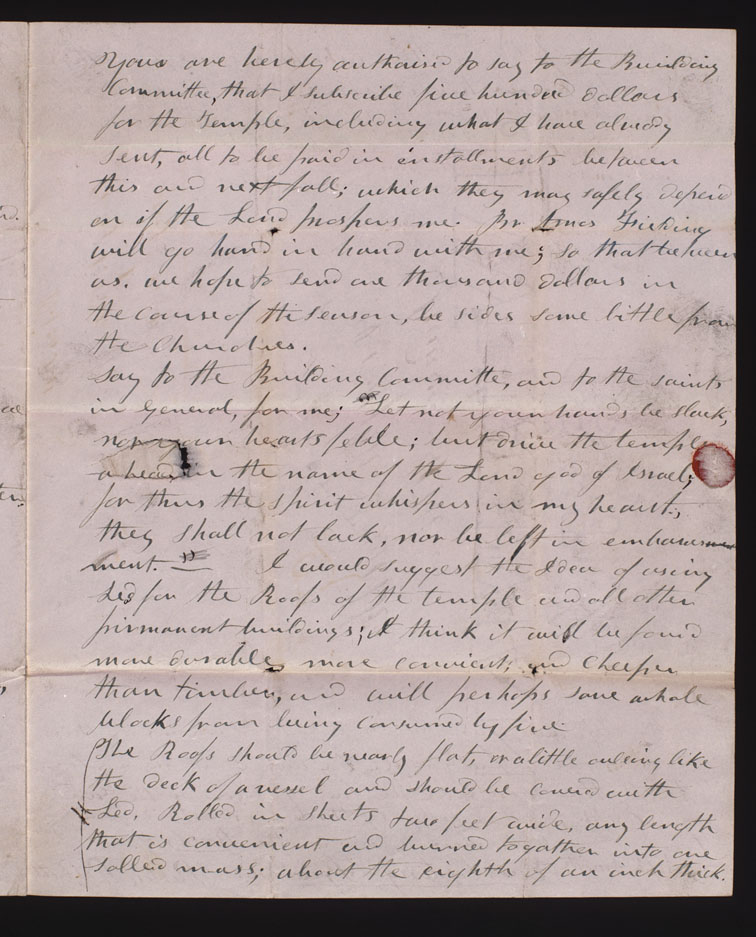 You are hereby authorised to say to the Buinding
Committee, that I subscribe five hundred dollars
for the Temple, including what I have already
sent, all to be paid in installments between
this and next fall; which they may safely depend
on if the Lord prospers me. Br Amos Fielding
will go hand in hand with me; so that between
us. we hope to send one thousand dollars in
the course of the season, be sides some little from
the Churches.
Say to the Building Committe, and to the saints
in general, for me; "Let not your hands be slack,
nor your hearts feble; but drive the temple
a head in the name of the Lord god of Israel;
for thus the spirit whispers in my heart;
they shall not lack, nor be left in embarass
ment. " I would suggest the Idea of using
Led for the Roofs of the temple and all other
pirmanent buildings; I think it will be found
more durable, more convient; and Cheeper
than timber, and will perhaps save whole
blocks from being consumed by fire
The Roofs should be nearly flat, or a little
like
the deck of a vessel and should be covered with
Led. Rolled in sheets two feet wide, any length
that is convenient and burned together into one
solled mass; about the eighth of an inch thick.